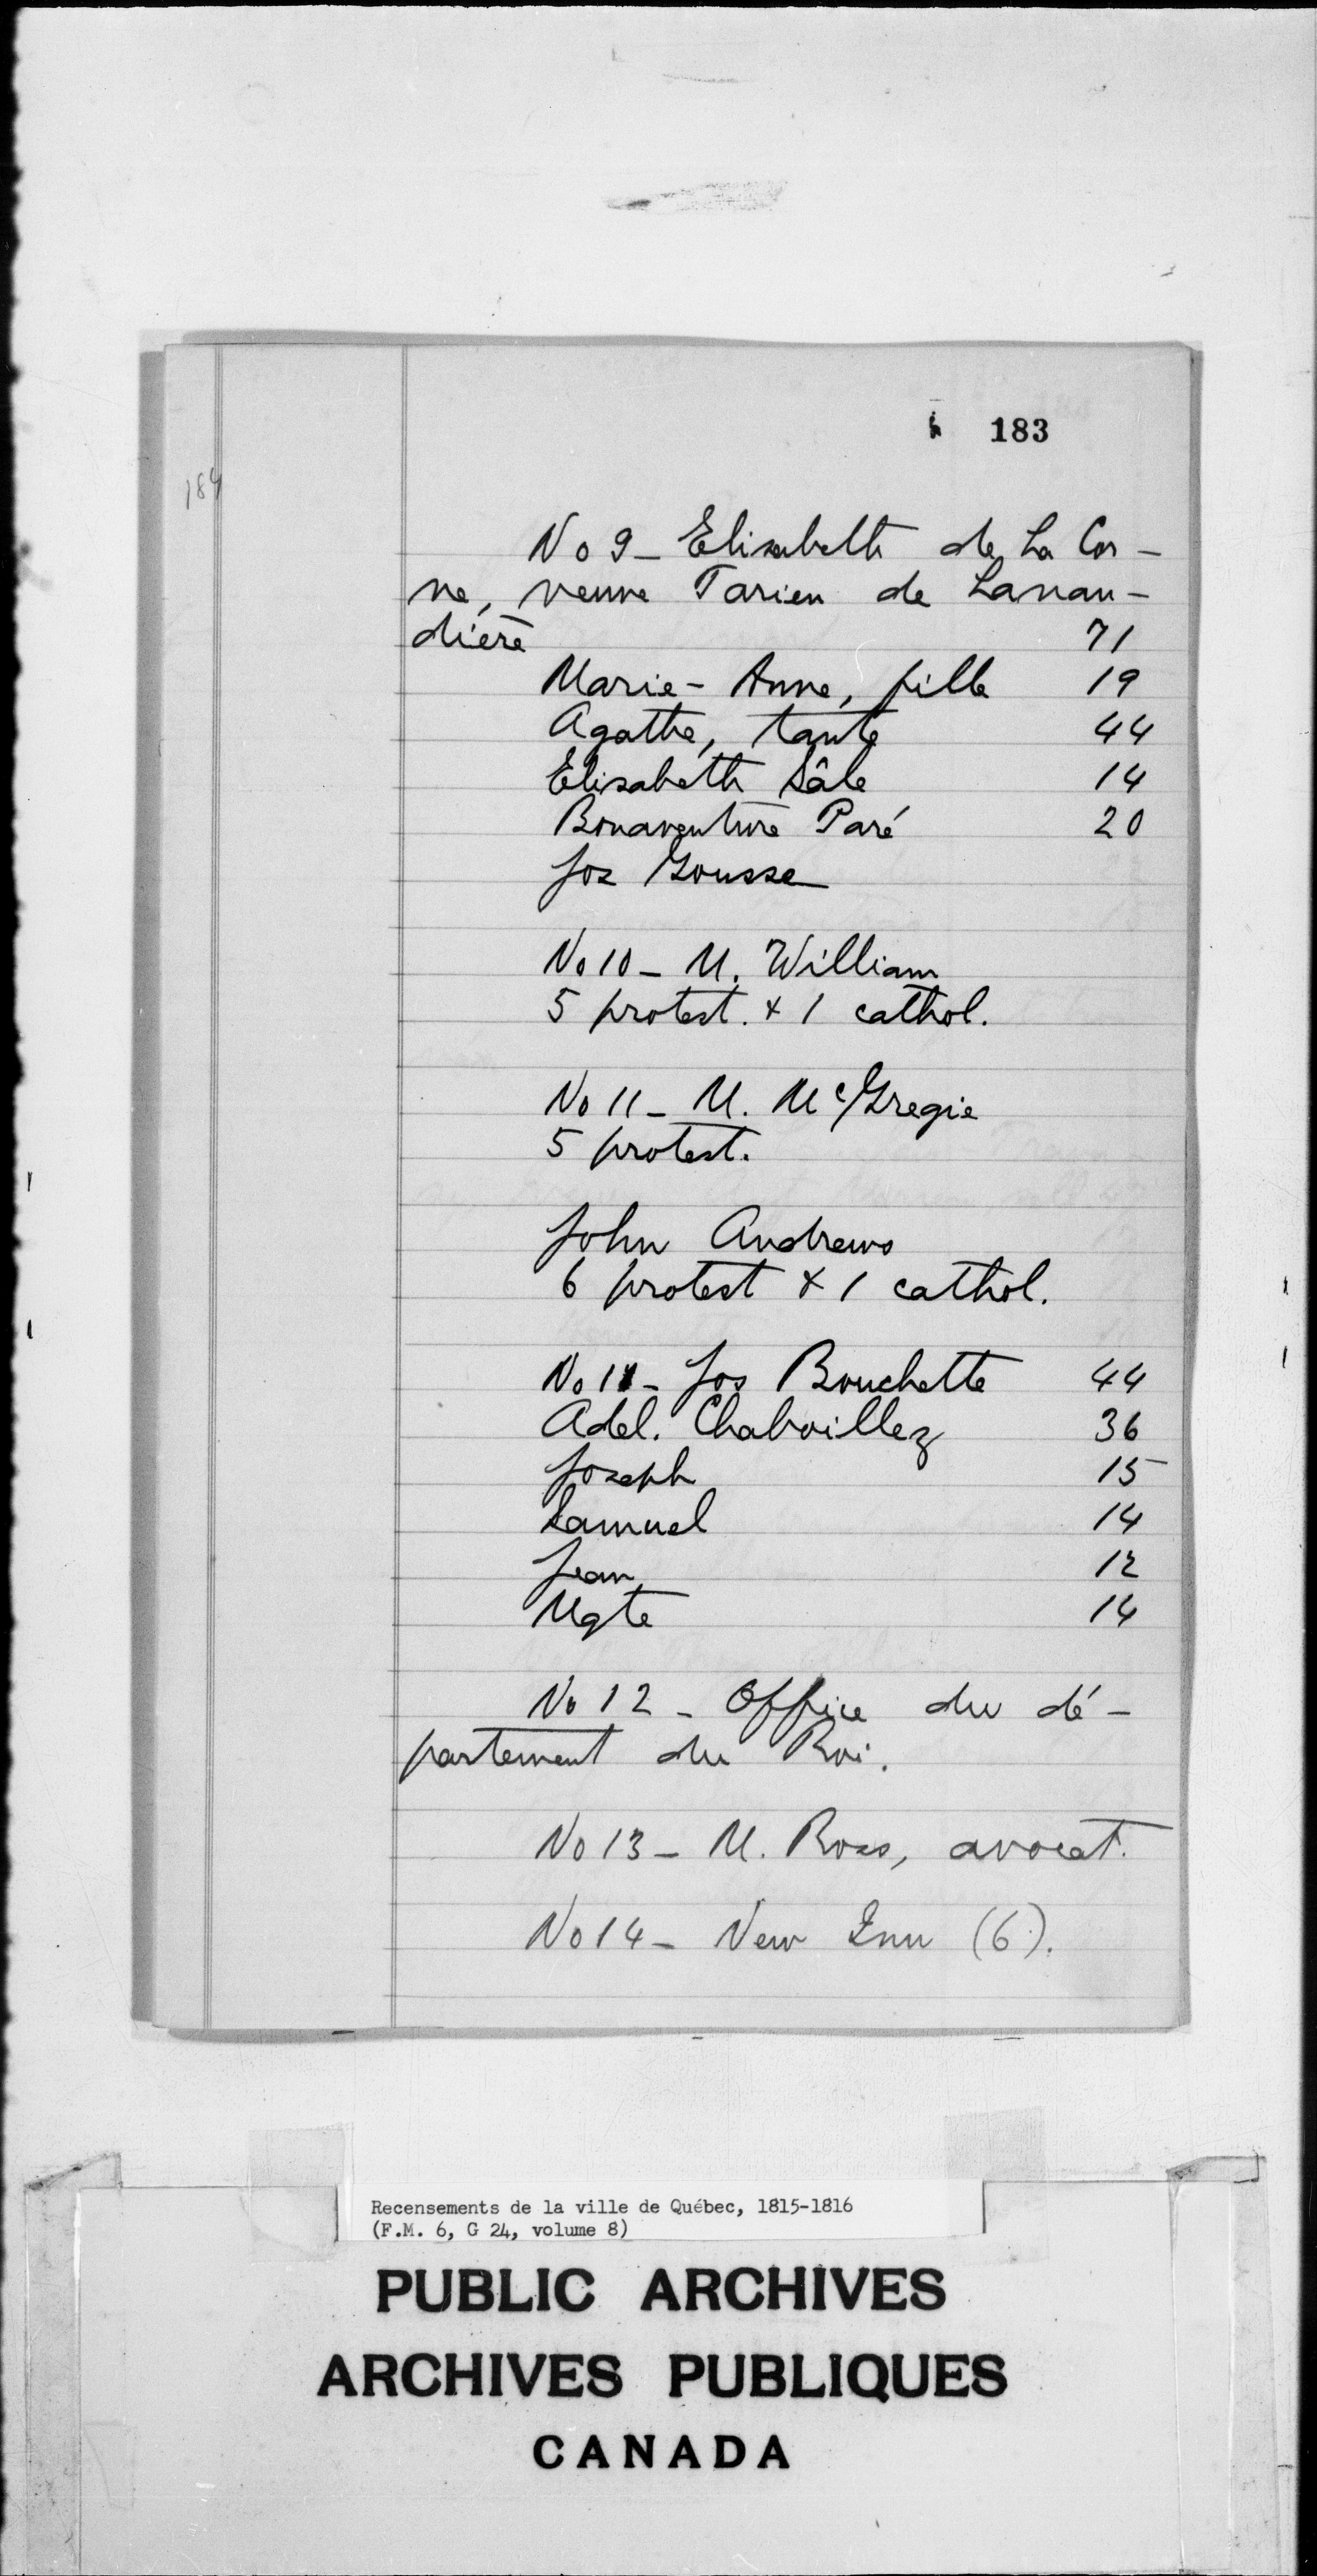 183
184
No 9 - Elisabeth de La Cor-
ne, veuve Tarieu de Lanau-
dière 71
Marie-Anne, fille 19
Agathe, tante 44
Elisabeth Sâle 14
Bonaventure Paré 20
Jos Gousse
No 10 - M. William
5 protest. & 1 cathol.
No 11 - M. McGregie
5 protest.
John Andrews
6 protest & 1 cathol.
No 11 - Jos Bouchette 44
Adel. Chaboillez 36
Joseph 15
Samuel 14
Jean 12
Mgte 14
No 12 - Office du dé-
partement du Roi.
No 13 - M. Ross, avocat.
No 14 - New Inn (6).
Recensements de la ville de Québec, 1815-1816
(F.M. 6, G 24, volume 8)
PUBLIC ARCHIVES
ARCHIVES PUBLIQUES
CANADA